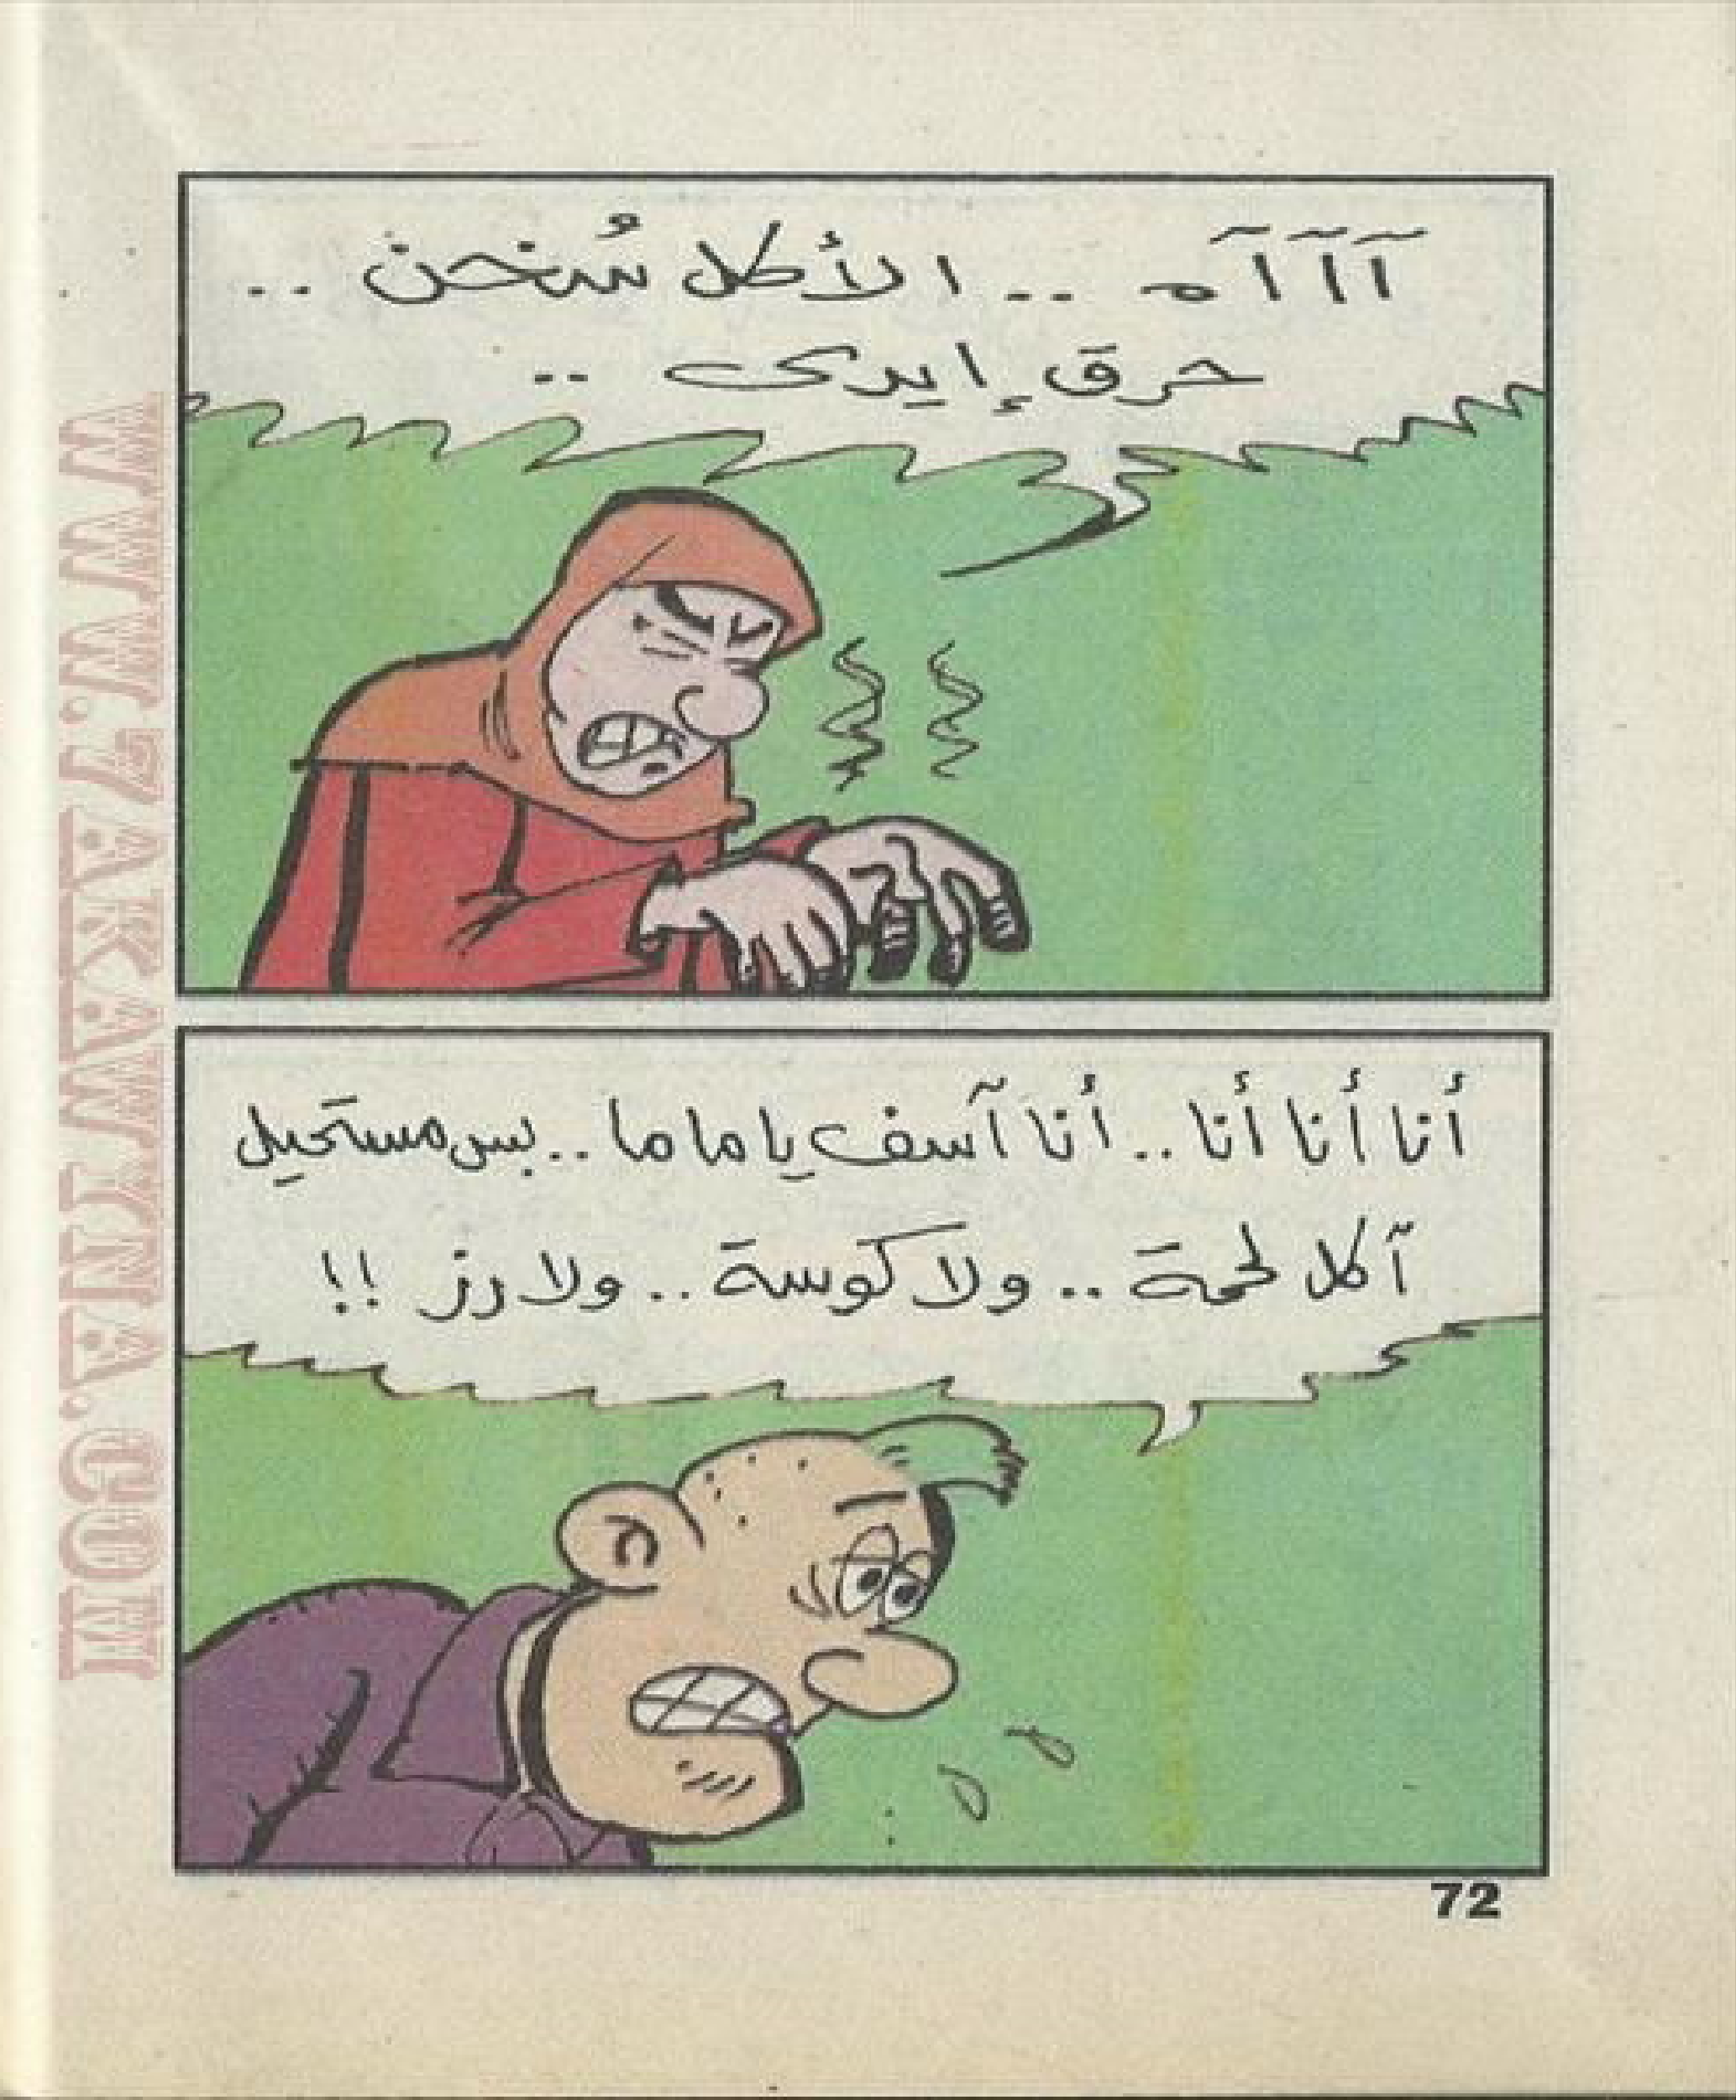 آآآه .. الأكل سُخن ..
حرق إيدى ..
أنا أنا أنا .. أنا آسف يا ماما .. بس مستحيل
آكل لحمة .. ولا كوسة .. ولا رز !!
72
WWW.7AKAWTNA.COM